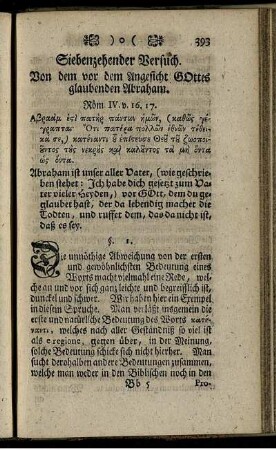 ) o ( 393
Siebenzehender Versuch.
Von dem vor dem Angesicht GOttes
glaubenden Abraham.
Röm. IV. v. 16. 17.
Αβραάμ ἐςὶ πατὴρ πάντων ἡμῶν, (καθὼς γέ-
γραπται· Ὅτι πατέρα πολλῶν ἐθνῶν τέθει-
κα σε,) κατέναντι ᾧ ἐπίςευσε Θεῦ τῦ ζωοποι-
ῦντος τὺς νεκρὺς καὶ καλῦντος τὰ μὴ ὄντα
ὡς ὄντα.
Abraham ist unser aller Vater, (wie geschrie-
ben stehet: Ich habe dich gesetzt zum Va-
ter vieler Heyden,) vor GOtt, dem du ge-
glaubet hast, der da lebendig machet die
Todten, und ruffet dem, das da nicht ist,
daß es sey.
§. 1.
Die unnöthige Abweichung von der ersten
und gewöhnlichsten Bedeutung eines
Worts macht vielmahl eine Rede, wel-
che an und vor sich ganz leichte und begreiflich ist,
dunckel und schwer. Wir haben hier ein Exempel
in diesem Spruche. Man verläßt insgemein die
erste und natürliche Bedeutung des Worts κατέ-
ναντι, welches nach aller Geständniß so viel ist
als e regione, gegen über, in der Meinung,
solche Bedeutung schicke sich nicht hierher. Man
sucht derohalben andere Bedeutungen zusammen,
welche man weder in den Biblischen noch in den
Bb 5 Pro-